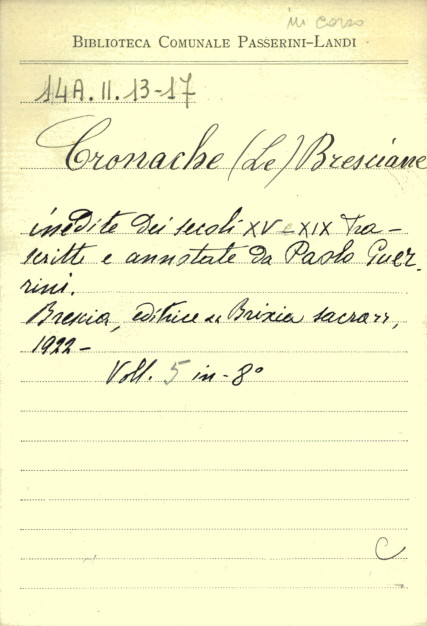 in corso
BIBLIOTECA COMUNALE PASSERINI-LANDI
14A.II.13-17
Cronache (Le) Bresciane
inedite dei secoli XV-XIX Tra-
scritte e annotate da Paolo Guer-
rini.
Brescia, editrice "Brixia sacra",
1922-
Voll. 5 in-8°
C